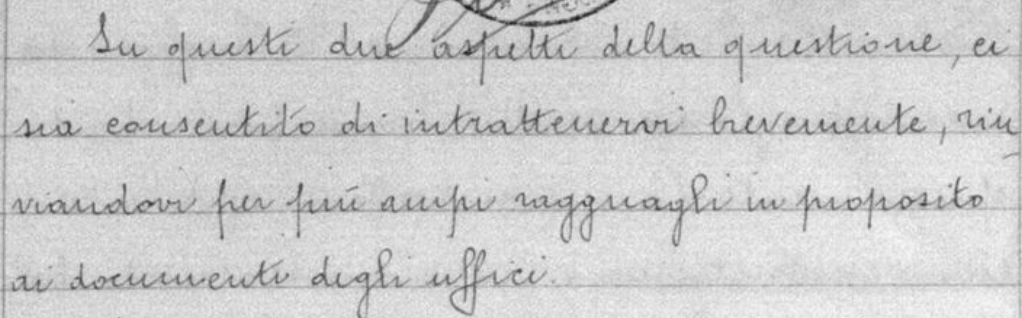 Su questi due aspetti della questione, ci
sia consentito di intrattenervi brevemente, rin
viandovi per più ampi ragguagli in proposito
ai documenti degli uffici.